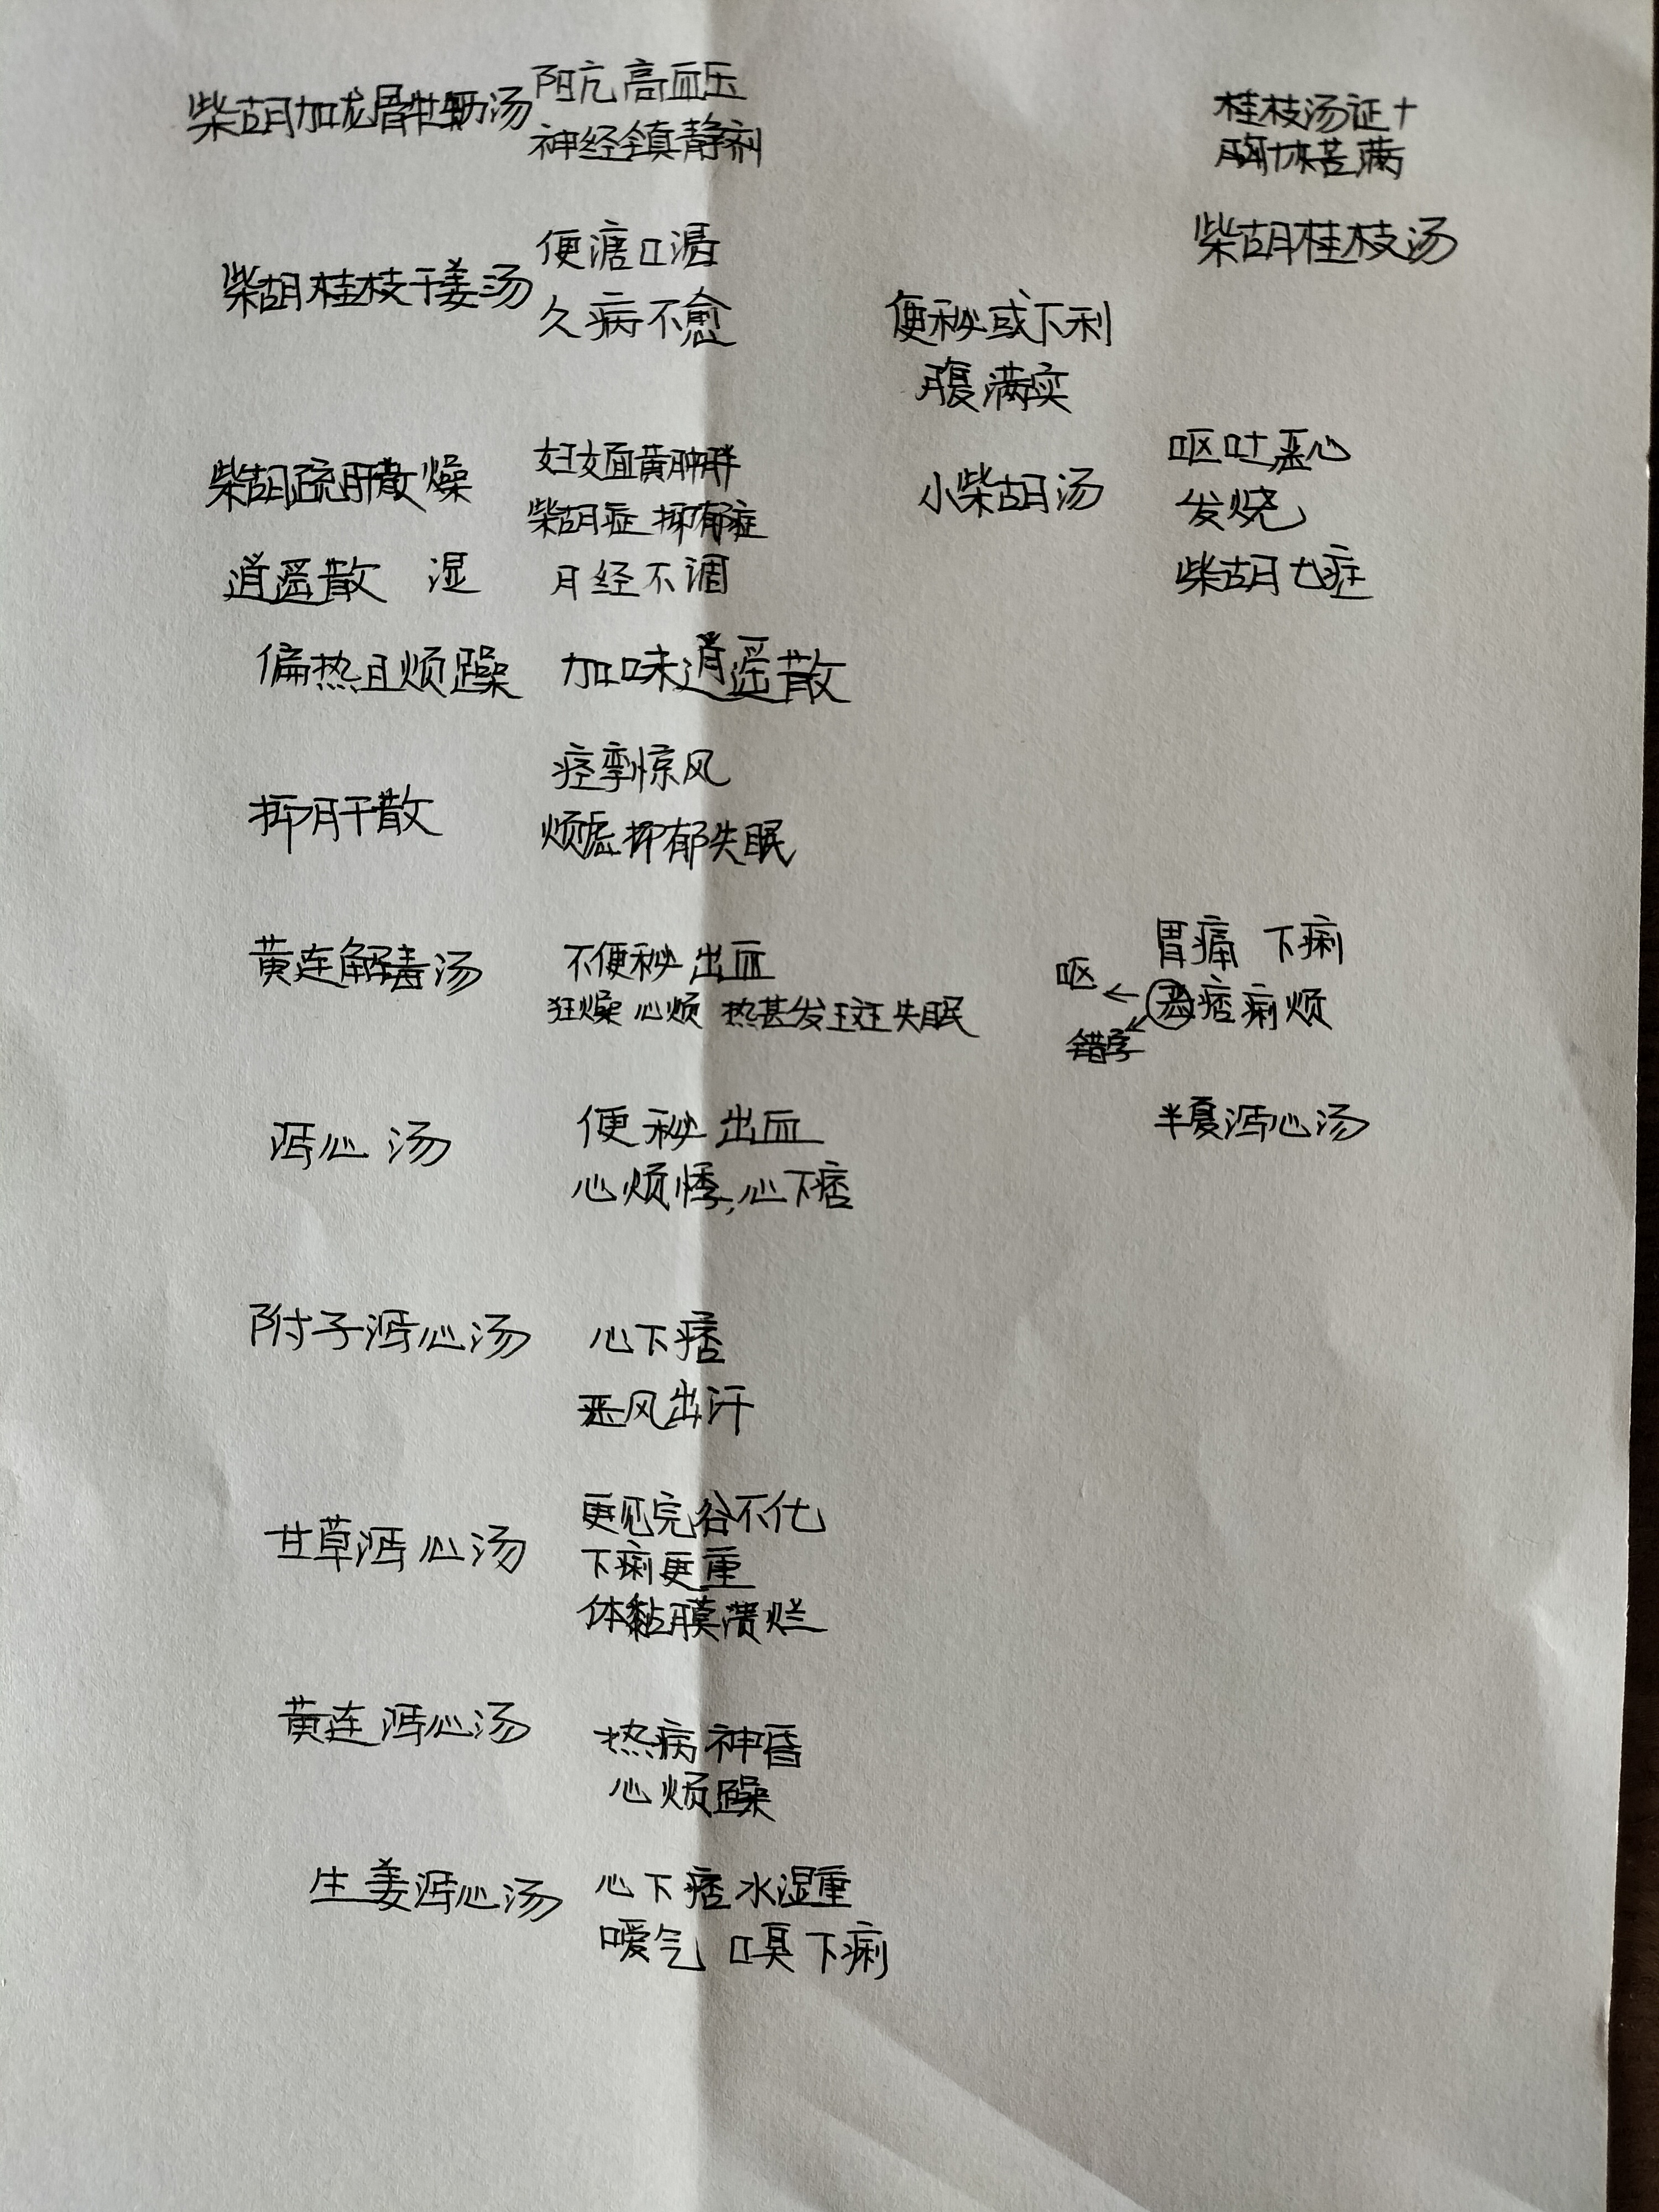 柴胡加龙骨牡蛎汤
阳亢 高血压
神经镇静剂
桂枝汤证+
胸胁苦满
柴胡桂枝汤
柴胡桂枝干姜汤
便溏口渴
久病不愈
便秘或下利
腹满实
柴胡疏肝散 燥
妇女面黄肿胖
柴胡症 抑郁症
小柴胡汤
呕吐恶心
发烧
柴胡七症
逍遥散 湿
月经不调
偏热且烦躁 加味逍遥散
抑肝散
痉挛惊风
烦虑抑郁失眠
黄连解毒汤
不便秘 出血
狂燥 心烦 热甚发斑 失眠
胃痛 下痢
呕 ← 痞痢烦
错字
泻心汤
便秘 出血
心烦悸,心下痞
半夏泻心汤
附子泻心汤
心下痞
恶风出汗
甘草泻心汤
更见完谷不化
下痢更重
体黏膜溃烂
黄连泻心汤
热病神昏
心烦躁
生姜泻心汤
心下痞水湿重
嗳气 口臭 下痢